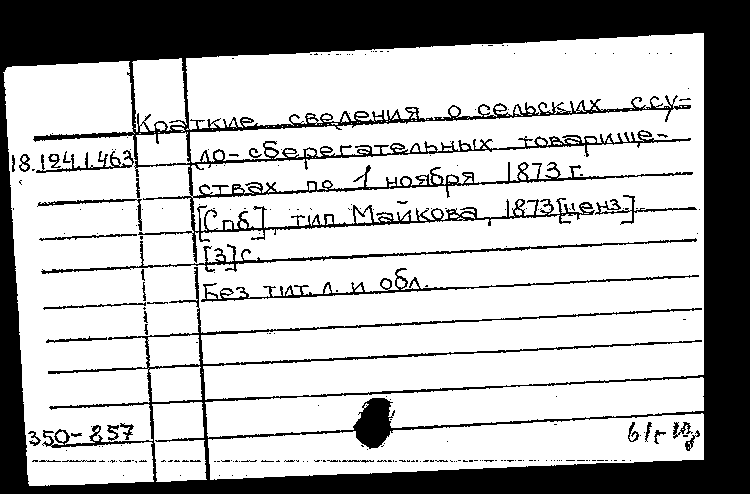 Краткие сведения о сельских ссу-
18.124.1.463 до-сберегательных товарище-
ствах по 1 ноября 1873 г.
[Спб], тип Майкова, 1873[ценз.].
[3]с.
Без тит. л. и обл.
350-857